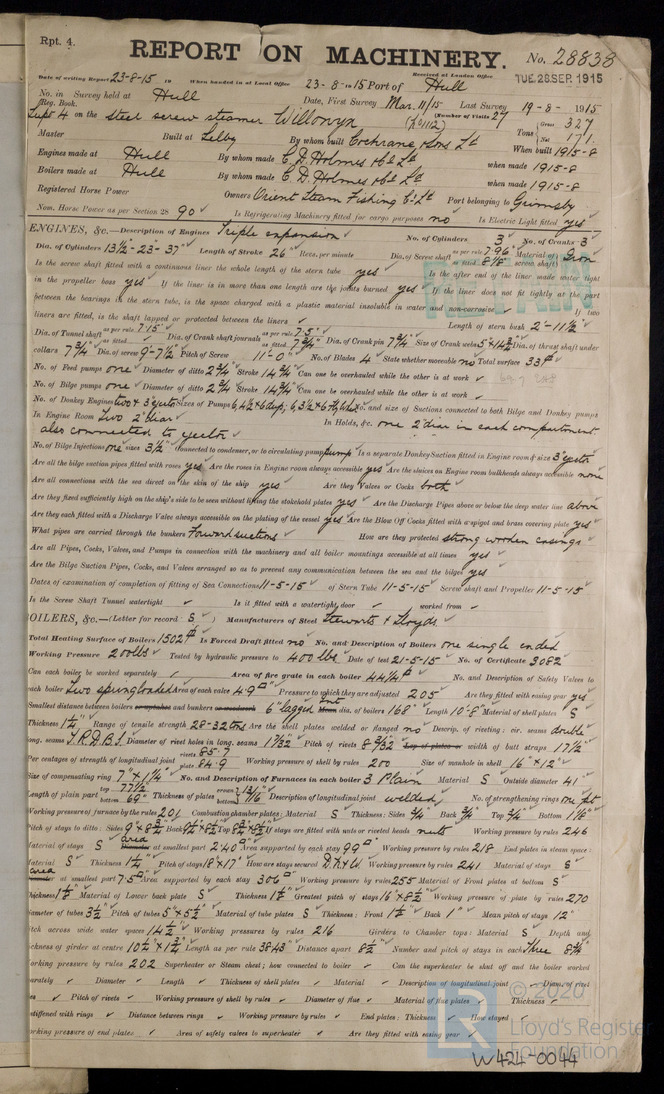 Rpt. 4.
REPORT ON MACHINERY. No. 28838
Date of writing Report 23-8-15 19 When handed in at Local Office 23-8-1915 Port of Hull Received at London Office TUE. 28 SEP. 1915
No. in Survey held at Hull Date, First Survey Mar. 11/15 Last Survey 19-8-1915
Reg. Book.
Supt 4 on the Steel screw steamer Willonyx (No 1112) (Number of Visits 27 Tons Gross 327 Net 171
Master Built at Selby By whom built Cochrane & Sons Ld When built 1915-8
Engines made at Hull By whom made C. D. Holmes & Co Ld when made 1915-8
Boilers made at Hull By whom made C. D. Holmes & Co Ld when made 1915-8
Registered Horse Power Owners Orient Steam Fishing Co Ld Port belonging to Grimsby
Nom. Horse Power as per Section 28 90 Is Refrigerating Machinery fitted for cargo purposes no Is Electric Light fitted yes
ENGINES, &c.—Description of Engines Triple expansion No. of Cylinders 3 No. of Cranks 3
Dia. of Cylinders 13½"-23-37" Length of Stroke 26" Revs. per minute Dia. of Screw shaft as per rule 7.96 as fitted 8⅛" Material of screw shaft Iron
Is the screw shaft fitted with a continuous liner the whole length of the stern tube yes Is the after end of the liner made water tight
in the propeller boss yes If the liner is in more than one length are the joints burned yes If the liner does not fit tightly at the part
between the bearings in the stern tube, is the space charged with a plastic material insoluble in water and non-corrosive If two
liners are fitted, is the shaft lapped or protected between the liners Length of stern bush 2'-11½"
Dia. of Tunnel shaft as per rule 7.15 as fitted Dia. of Crank shaft journals as per rule 7.5" as fitted 7¾" Dia. of Crank pin 7¾" Size of Crank webs 5"x14¾" Dia. of thrust shaft under
collars 7¾" Dia. of screw 9'-7½" Pitch of Screw 11'-0" No. of Blades 4 State whether moveable no Total surface 33 ft
No. of Feed pumps one Diameter of ditto 2¾" Stroke 14¾" Can one be overhauled while the other is at work
No. of Bilge pumps one Diameter of ditto 2¾" Stroke 14¾" Can one be overhauled while the other is at work
No. of Donkey Engines two & 3" ejector Sizes of Pumps No. and size of Suctions connected to both Bilge and Donkey pumps
In Engine Room Two 2" diar In Holds, &c. one 2" diar in each compartment
also connected to ejector
No. of Bilge Injections one sizes 3½" Connected to condenser, or to circulating pump pump Is a separate Donkey Suction fitted in Engine room & size 3" ejector
Are all the bilge suction pipes fitted with roses yes Are the roses in Engine room always accessible yes Are the sluices on Engine room bulkheads always accessible none
Are all connections with the sea direct on the skin of the ship yes Are they Valves or Cocks both
Are they fixed sufficiently high on the ship's side to be seen without lifting the stokehold plates yes Are the Discharge Pipes above or below the deep water line above
Are they each fitted with a Discharge Valve always accessible on the plating of the vessel yes Are the Blow Off Cocks fitted with a spigot and brass covering plate yes
What pipes are carried through the bunkers Forward suctions How are they protected strong wooden casings
Are all Pipes, Cocks, Valves, and Pumps in connection with the machinery and all boiler mountings accessible at all times yes
Are the Bilge Suction Pipes, Cocks, and Valves arranged so as to prevent any communication between the sea and the bilges yes
Dates of examination of completion of fitting of Sea Connections 11-5-15 of Stern Tube 11-5-15 Screw shaft and Propeller 11-5-15
Is the Screw Shaft Tunnel watertight Is it fitted with a watertight door worked from
OILERS, &c.—(Letter for record S) Manufacturers of Steel Stewarts & Lloyds
Total Heating Surface of Boilers 1502 ft Is Forced Draft fitted no No. and Description of Boilers one single ended
Working Pressure 200 lbs Tested by hydraulic pressure to 400 lbs Date of test 21-5-15 No. of Certificate 3082
Can each boiler be worked separately Area of fire grate in each boiler 44¼ ft No. and Description of Safety Valves to
each boiler Two spring loaded Area of each valve 4.9" Pressure to which they are adjusted 205 Are they fitted with easing gear yes
Smallest distance between boilers or uptakes and bunkers or woodwork 6" lagged Int dia. of boilers 168" Length 10'-8" Material of shell plates S
Thickness 1¼" Range of tensile strength 28-32 tons Are the shell plates welded or flanged no Descrip. of riveting: cir. seams double
long. seams T.R.D.B.S. Diameter of rivet holes in long. seams 1 7/32" Pitch of rivets 8 9/32" Lap of plates or width of butt straps 17½"
Per centages of strength of longitudinal joint rivets 85.7 plate 84.9 Working pressure of shell by rules 200 Size of manhole in shell 16"x12"
Size of compensating ring 7"x1¼" No. and Description of Furnaces in each boiler 3 Plain Material S Outside diameter 41"
Length of plain part top 77½" bottom 69" Thickness of plates crown bottom 13/16" Description of longitudinal joint welded No. of strengthening rings one pt
Working pressure of furnace by the rules 201 Combustion chamber plates: Material S Thickness: Sides ¾" Back ¾" Top ¾" Bottom 1⅛"
Pitch of stays to ditto: Sides 9"x8½" Back 9½"x8½" Top 8¾"x8½" If stays are fitted with nuts or riveted heads nuts Working pressure by rules 246
Material of stays S area at smallest part 2.40" Area supported by each stay 99" Working pressure by rules 218 End plates in steam space:
Material S Thickness 1¼" Pitch of stays 18"x17" How are stays secured D.N.&W. Working pressure by rules 241 Material of stays S
area at smallest part 7.5" Area supported by each stay 306" Working pressure by rules 255 Material of Front plates at bottom S
Thickness 1½" Material of Lower back plate S Thickness 1½" Greatest pitch of stays 16"x8½" Working pressure of plate by rules 270
iameter of tubes 3½" Pitch of tubes 5"x5½" Material of tube plates S Thickness: Front 1½" Back 1" Mean pitch of stays 12"
itch across wide water spaces 14½" Working pressures by rules 216 Girders to Chamber tops: Material S Depth and
ickness of girder at centre 10½"x1¾" Length as per rule 38.43" Distance apart 8½" Number and pitch of stays in each Three 8¾"
orking pressure by rules 202 Superheater or Steam chest; how connected to boiler Can the superheater be shut off and the boiler worked
arately Diameter Length Thickness of shell plates Material Description of longitudinal joint Diam. of rivet
es Pitch of rivets Working pressure of shell by rules Diameter of flue Material of flue plates Thickness
stiffened with rings Distance between rings Working pressure by rules End plates: Thickness How stayed
orking pressure of end plates Area of safety valves to superheater Are they fitted with easing gear
© 2020
Lloyd's Register
Foundation
W424-0044